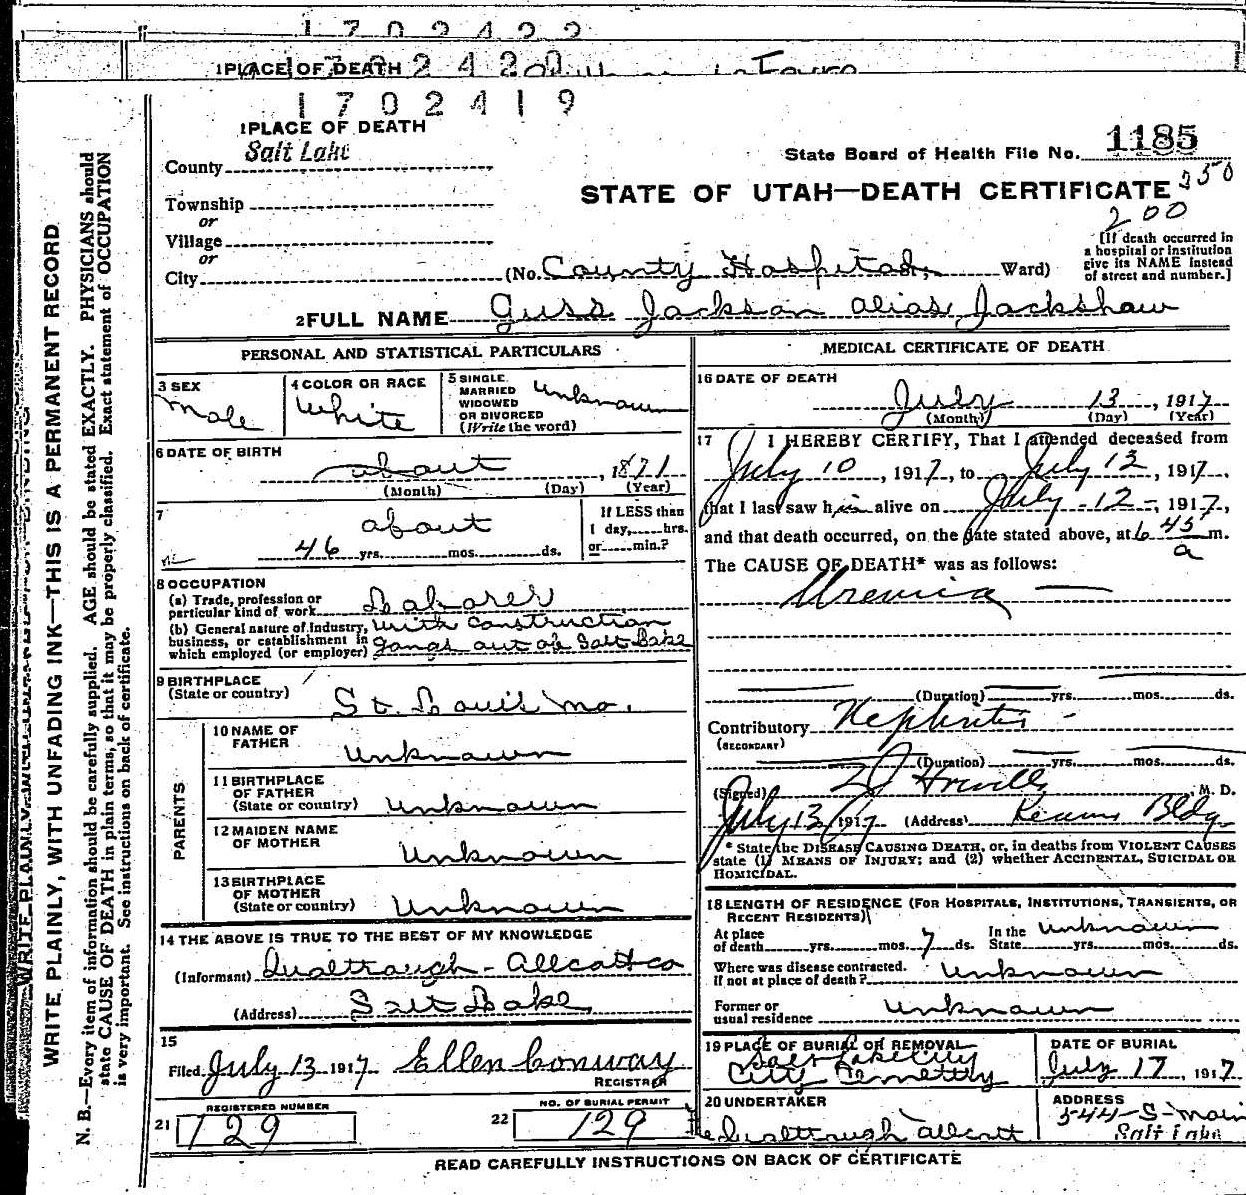 1 7 0 2 4 2 2
1 PLACE OF DEATH
1 7 0 2 4 1 9
1 PLACE OF DEATH
County Salt Lake
State Board of Health File No. 1185
Township
or
STATE OF UTAH—DEATH CERTIFICATE 350
200
Village
or
City
(No. County Hospital, Ward)
[If death occurred in
a hospital or institution
give its NAME instead
of street and number.]
2 FULL NAME Guss Jackson alias Jackshaw
PERSONAL AND STATISTICAL PARTICULARS
3 SEX
Male
4 COLOR OR RACE
White
5 SINGLE
MARRIED
WIDOWED
OR DIVORCED
(Write the word)
Unknown
6 DATE OF BIRTH
about, 1871
(Month) (Day) (Year)
7
about
46 yrs. mos. ds.
If LESS than
1 day, hrs.
or min.?
8 OCCUPATION
(a) Trade, profession or
particular kind of work Laborer
(b) General nature of Industry,
business, or establishment in
which employed (or employer)
with construction
gangs out of Salt Lake
9 BIRTHPLACE
(State or country)
St. Louis Mo.
PARENTS
10 NAME OF
FATHER
Unknown
11 BIRTHPLACE
OF FATHER
(State or country) Unknown
12 MAIDEN NAME
OF MOTHER
Unknown
13 BIRTHPLACE
OF MOTHER
(State or country) Unknown
14 THE ABOVE IS TRUE TO THE BEST OF MY KNOWLEDGE
(Informant) Dualtrough-Allcott co
(Address) Salt Lake
15
Filed July 13 1917 Ellen Conway
REGISTRAR
REGISTERED NUMBER
21 129
NO. OF BURIAL PERMIT
22 129
MEDICAL CERTIFICATE OF DEATH
16 DATE OF DEATH
July 13, 1917
(Month) (Day) (Year)
17 I HEREBY CERTIFY, That I attended deceased from
July 10, 1917, to July 12, 1917,
that I last saw him alive on July 12, 1917,
and that death occurred, on the date stated above, at 6 45 m.
a
The CAUSE OF DEATH* was as follows:
Uremia
(Duration) yrs. mos. ds.
Contributory Nephritis
(SECONDARY)
(Duration) yrs. mos. ds.
(Signed) M. D.
July 13 1917 (Address) Kearns Bldg
* State the DISEASE CAUSING DEATH, or, in deaths from VIOLENT CAUSES
state (1) MEANS OF INJURY; and (2) whether ACCIDENTAL, SUICIDAL OR
HOMICIDAL.
18 LENGTH OF RESIDENCE (FOR HOSPITALS, INSTITUTIONS, TRANSIENTS, OR
RECENT RESIDENTS)
At place
of death yrs. mos. 7 ds.
In the
State Unknown yrs. mos. ds.
Where was disease contracted.
If not at place of death? Unknown
Former or
usual residence Unknown
19 PLACE OF BURIAL OR REMOVAL
Salt Lake City
City Cemetery
DATE OF BURIAL
July 17, 1917
20 UNDERTAKER
Dualtrough Allcott
ADDRESS
544-S-Main
Salt Lake
READ CAREFULLY INSTRUCTIONS ON BACK OF CERTIFICATE
WRITE PLAINLY, WITH UNFADING INK—THIS IS A PERMANENT RECORD
N. B.—Every item of information should be carefully supplied. AGE should be stated EXACTLY. PHYSICIANS should
state CAUSE OF DEATH in plain terms, so that it may be properly classified. Exact statement of OCCUPATION
is very important. See instructions on back of certificate.